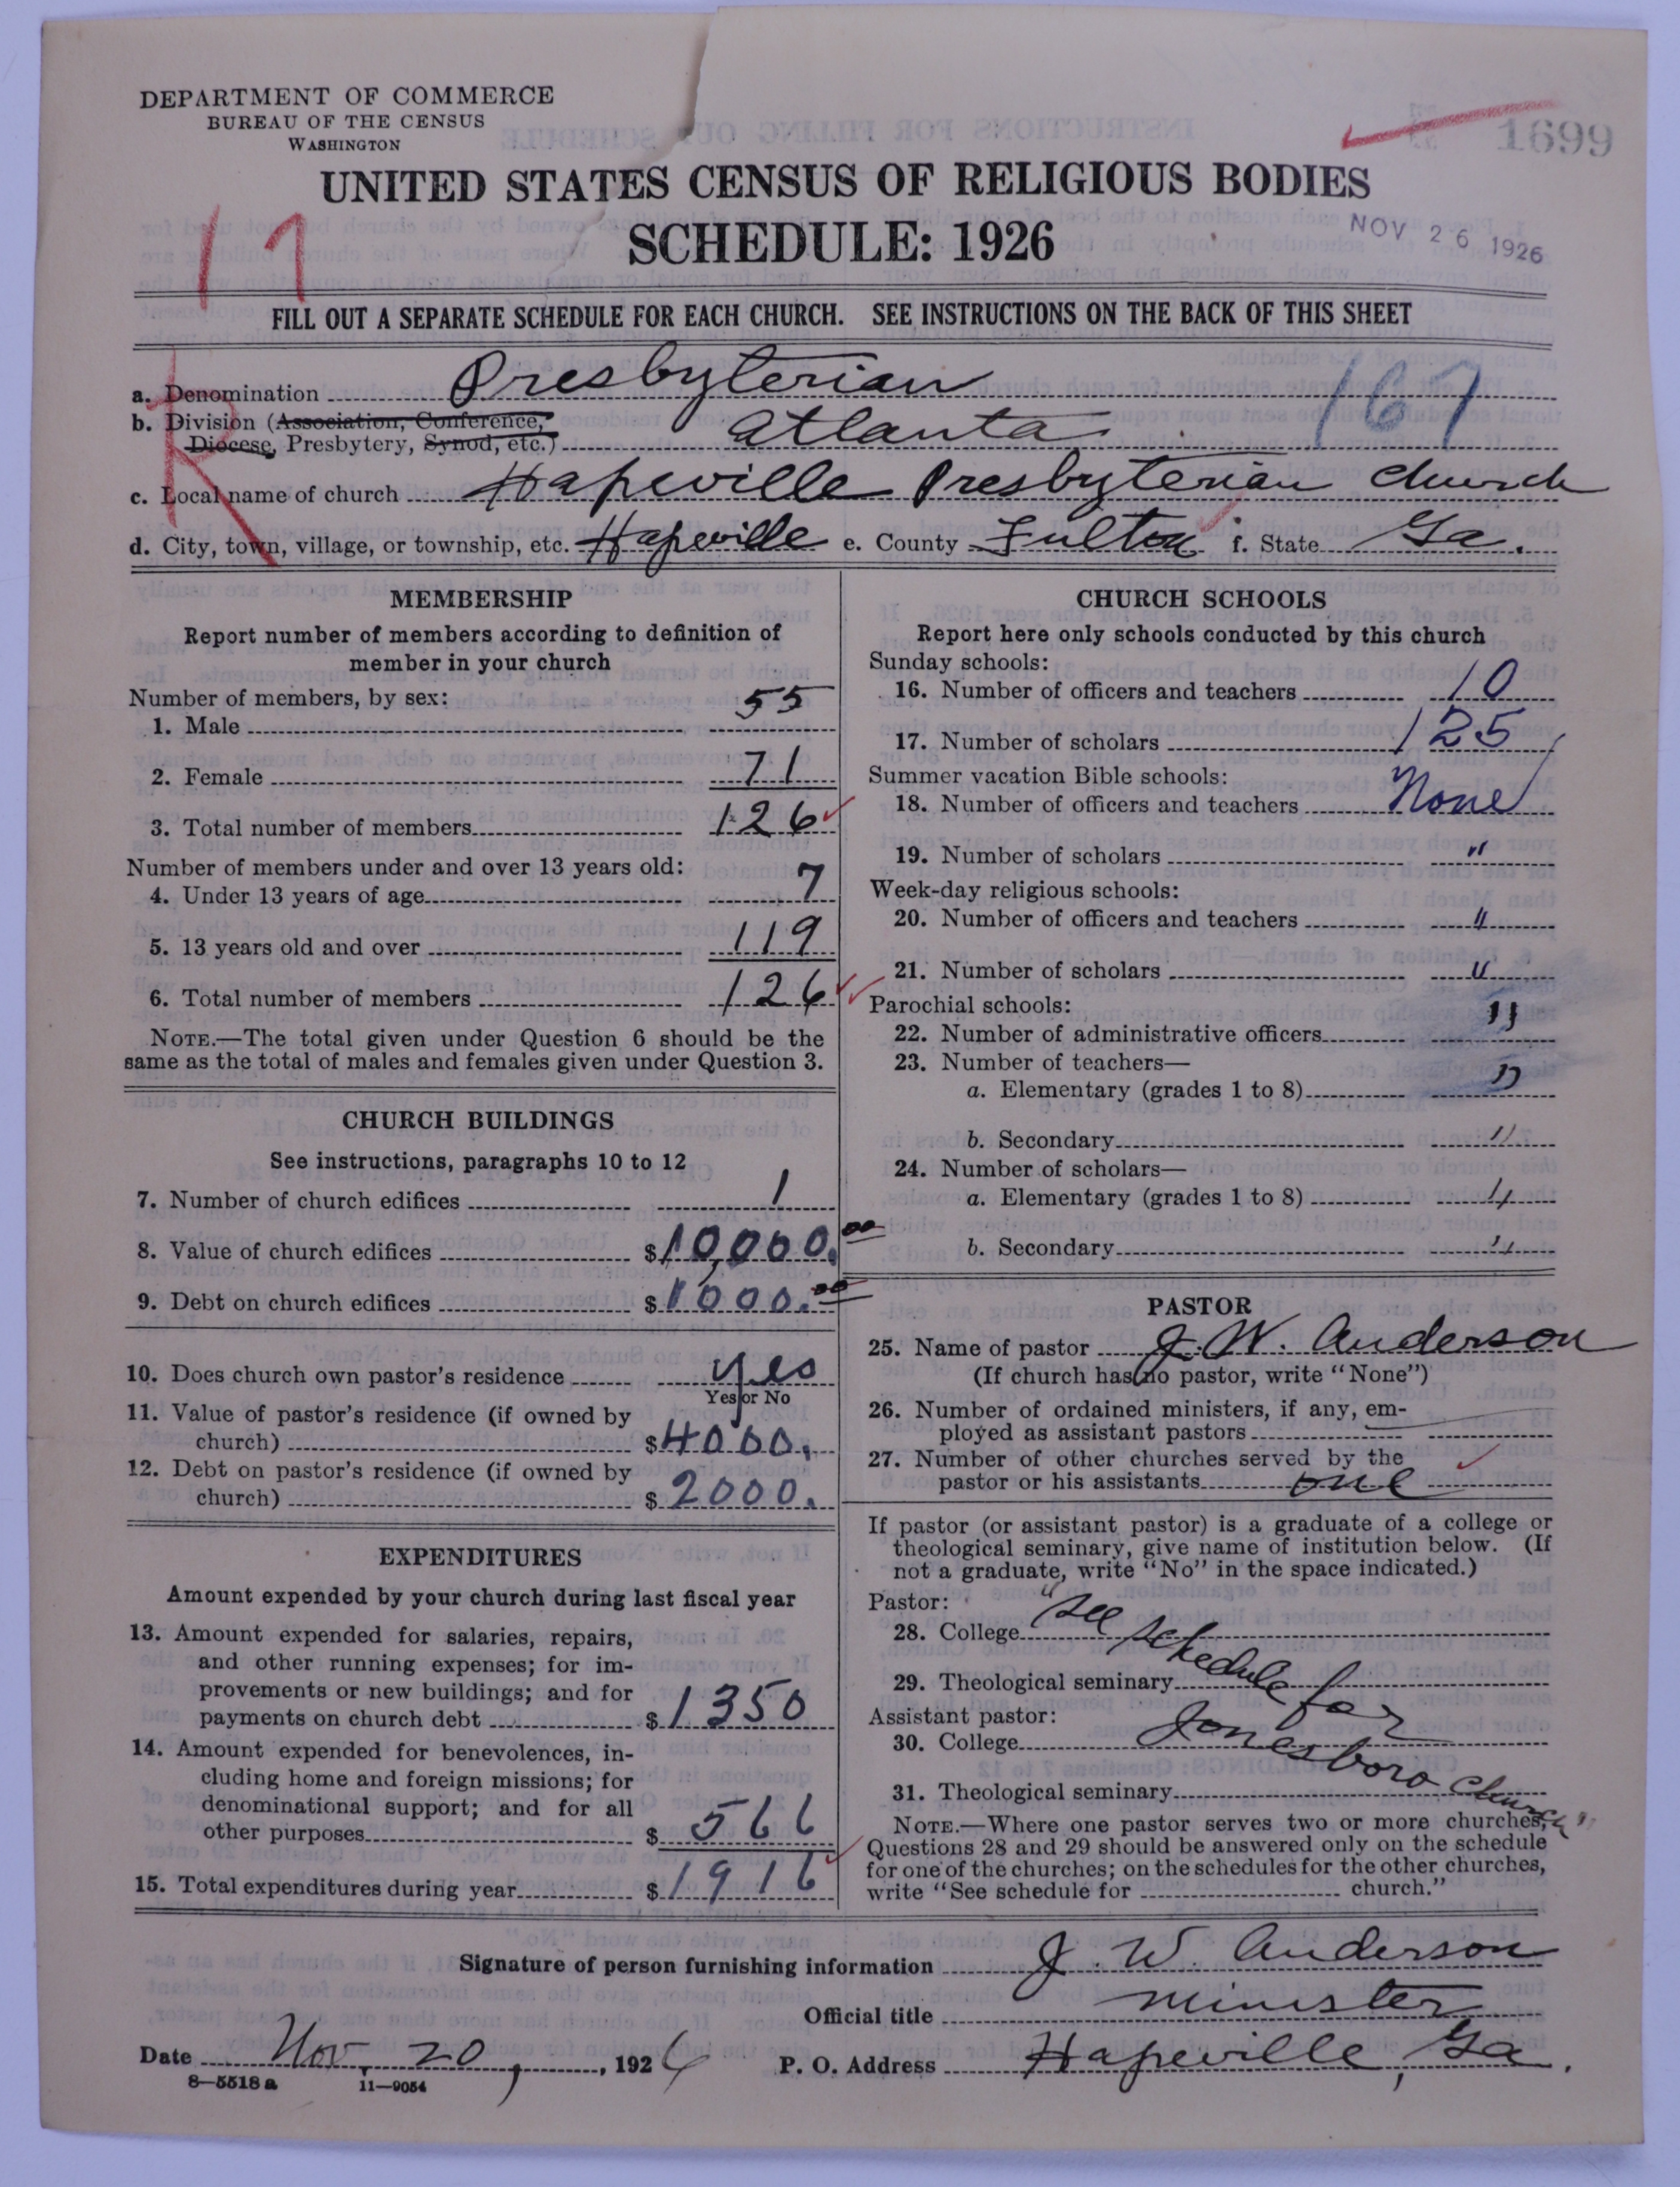 DEPARTMENT OF COMMERCE
BUREAU OF THE CENSUS
WASHINGTON
1699
UNITED STATES CENSUS OF RELIGIOUS BODIES
SCHEDULE: 1926
NOV 26 1926
17
FILL OUT A SEPARATE SCHEDULE FOR EACH CHURCH. SEE INSTRUCTIONS ON THE BACK OF THIS SHEET
R
167
a. Denomination Presbyterian
b. Division (Association, Conference,
Diocese, Presbytery, Synod, etc.) Atlanta
c. Local name of church Hapeville Presbyterian Church
d. City, town, village, or township, etc. Hapeville e. County Fulton f. State Ga.
MEMBERSHIP
Report number of members according to definition of
member in your church
Number of members, by sex:
1. Male 55
2. Female 71
3. Total number of members 126
Number of members under and over 13 years old:
4. Under 13 years of age 7
5. 13 years old and over 119
6. Total number of members 126
NOTE.—The total given under Question 6 should be the
same as the total of males and females given under Question 3.
CHURCH BUILDINGS
See instructions, paragraphs 10 to 12
7. Number of church edifices 1
8. Value of church edifices $10,000.00
9. Debt on church edifices $1000.00
10. Does church own pastor's residence yes
Yes or No
11. Value of pastor's residence (if owned by
church) $4000.
12. Debt on pastor's residence (if owned by
church) $2000.
EXPENDITURES
Amount expended by your church during last fiscal year
13. Amount expended for salaries, repairs,
and other running expenses; for im-
provements or new buildings; and for
payments on church debt $1350
14. Amount expended for benevolences, in-
cluding home and foreign missions; for
denominational support; and for all
other purposes $566
15. Total expenditures during year $1916
CHURCH SCHOOLS
Report here only schools conducted by this church
Sunday schools:
16. Number of officers and teachers 10
17. Number of scholars 125
Summer vacation Bible schools:
18. Number of officers and teachers None
19. Number of scholars "
Week-day religious schools:
20. Number of officers and teachers "
21. Number of scholars "
Parochial schools:
22. Number of administrative officers "
23. Number of teachers—
a. Elementary (grades 1 to 8) "
b. Secondary "
24. Number of scholars—
a. Elementary (grades 1 to 8) "
b. Secondary "
PASTOR
25. Name of pastor J. W. Anderson
(If church has no pastor, write "None")
26. Number of ordained ministers, if any, em-
ployed as assistant pastors
27. Number of other churches served by the
pastor or his assistants one
If pastor (or assistant pastor) is a graduate of a college or
theological seminary, give name of institution below. (If
not a graduate, write "No" in the space indicated.)
Pastor:
28. College
29. Theological seminary
Assistant pastor:
30. College
31. Theological seminary
"See schedule for Jonesboro Church"
NOTE.—Where one pastor serves two or more churches,
Questions 28 and 29 should be answered only on the schedule
for one of the churches; on the schedules for the other churches,
write "See schedule for church."
Signature of person furnishing information J. W. Anderson
Official title Minister
Date Nov. 20, 1926 P. O. Address Hapeville, Ga.
8—5518a 11—9054